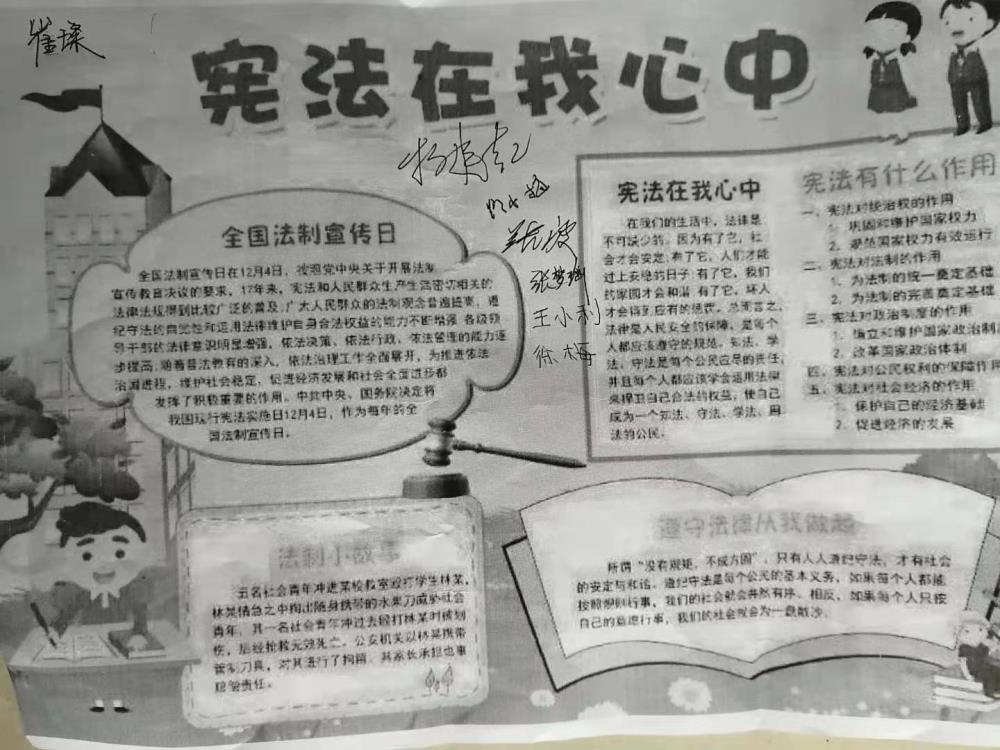 崔璨
宪法在我心中
张梦瑶
王小利
徐梅
全国法制宣传日
全国法制宣传日在12月4日，按照党中央关于开展法制
宣传教育决议的要求，17年来，宪法和人民群众生产生活密切相关的
法律法规得到比较广泛的普及，广大人民群众的法制观念普遍提高，遵
纪守法的自觉性和运用法律维护自身合法权益的能力不断增强 各级领
导干部的法律意识明显增强，依法决策、依法行政、依法管理的能力逐
步提高；随着普法教育的深入，依法治理工作全面展开，为推进依法
治国进程，维护社会稳定，促进经济发展和社会全面进步都
发挥了积极重要的作用。中共中央、国务院决定将
我国现行宪法实施日12月4日，作为每年的全
国法制宣传日。
宪法在我心中
在我们的生活中，法律是
不可缺少的，因为有了它，社
会才会安定；有了它，人们才能
过上安稳的日子；有了它，我们
的家园才会和谐；有了它，坏人
才会得到应有的惩罚。总而言之，
法律是人民安全的保障，是每个
人都应该遵守的规范。知法、学
法、守法是每个公民应尽的责任，
并且每个人都应该学会运用法律
来捍卫自己合法的权益，使自己
成为一个知法、守法、学法、用
法的公民。
宪法有什么作用
一、宪法对统治权的作用
1、巩固和维护国家权力
2、规范国家权力有效运行
二、宪法对法制的作用
1、为法制的统一奠定基础
2、为法制的完善奠定基础
三、宪法对政治制度的作用
1、确立和维护国家政治制
2、改革国家政治体制
四、宪法对公民权利的保障作用
五、宪法对社会经济的作用
1、保护自己的经济基础
2、促进经济的发展
法制小故事
五名社会青年冲进某校教室殴打学生林某，
林某情急之中掏出随身携带的水果刀威胁社会
青年，其一名社会青年冲过去殴打林某时被划
伤，后经抢救无效死亡。公安机关以林某携带
管制刀具，对其进行了拘留，其家长承担也事
赔偿责任。
遵守法律从我做起
所谓“没有规矩，不成方圆”，只有人人遵纪守法，才有社会
的安定与和谐。遵纪守法是每个公民的基本义务，如果每个人都能
按照规则行事，我们的社会就会井然有序。相反，如果每个人只按
自己的意愿行事，我们的社会就会为一盘散沙。